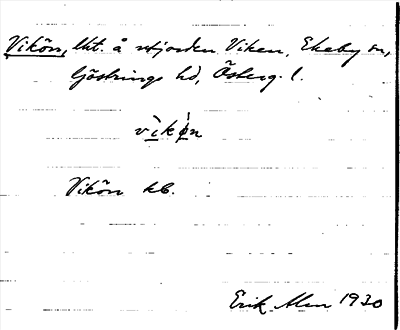 Vikön, lht. å utjorden Viken, Ekeby sn,
Göstrings hd, Österg. l.
vìkø̀n
Vikön kb.
Erik Alm 1930